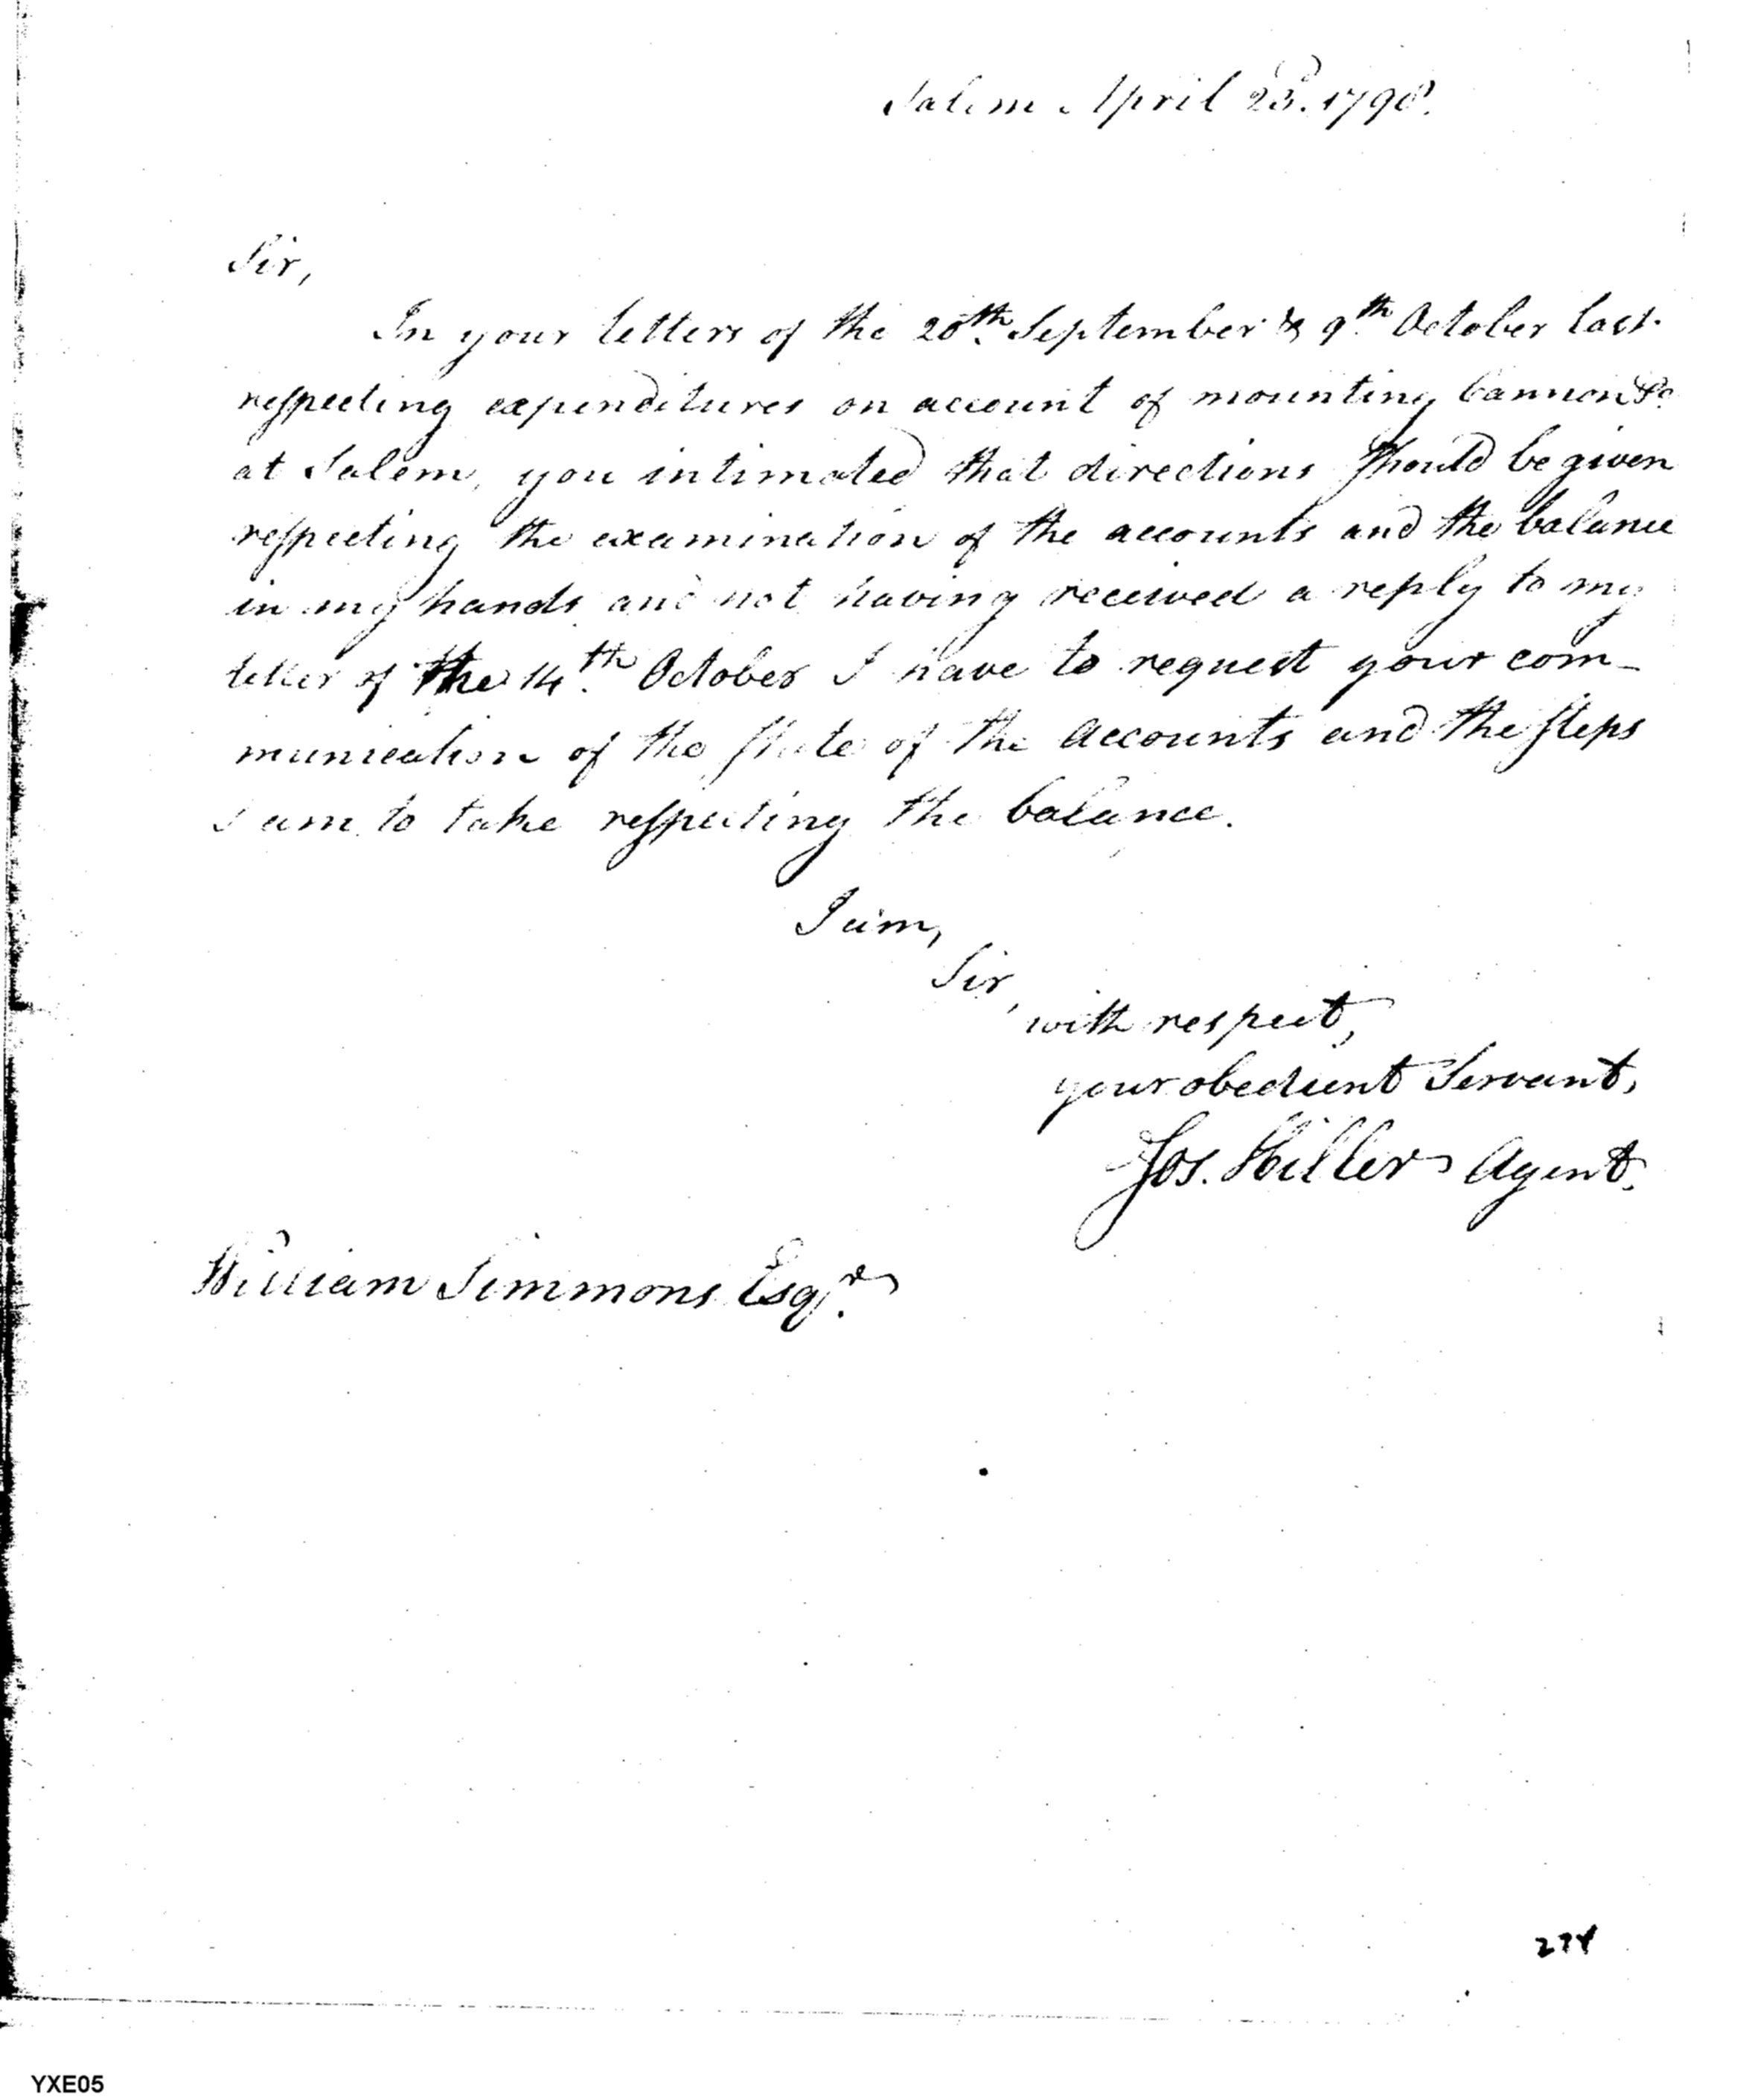 Salem April 23d. 1798.
Sir,
In your letters of the 20th. September & 9th October last.
respecting expenditures on account of mounting Cannon &c
at Salem, you intimated that directions should be given
respecting the examination of the accounts and the balance
in my hands and not having received a reply to my
letter of the 14th. October I have to request your com-
munication of the state of the accounts and the steps
I am to take respecting the balance.
I am,
Sir,
with respect,
your obedient Servant,
Jos. Hiller Agent.
William Simmons Esqre.
YXE05